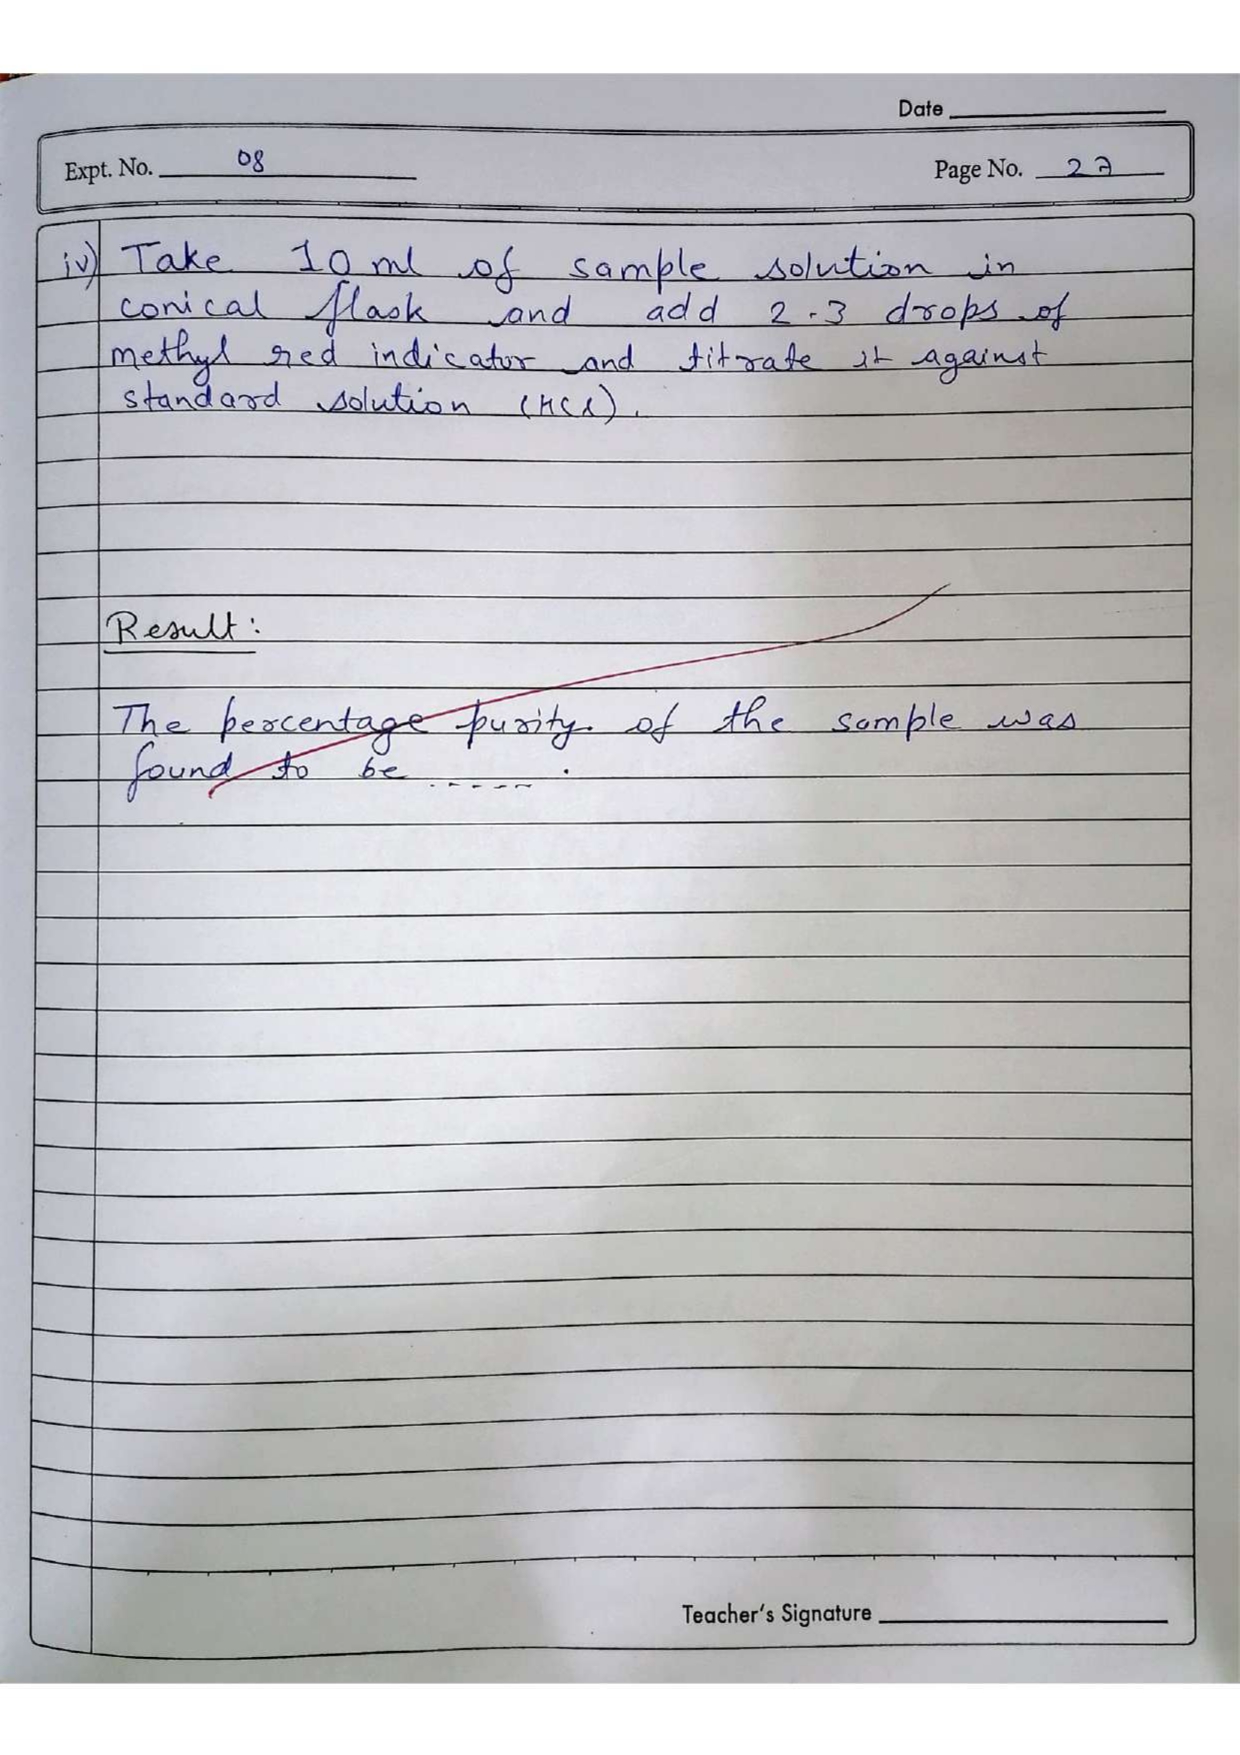 Date
Expt. No. 08
Page No. 27
iv) Take 10 ml of sample solution in
conical flask and add 2-3 drops of
methyl red indicator and titrate it against
standard solution (HCl).
Result:
The percentage purity of the sample was
found to be ...... .
Teacher's Signature